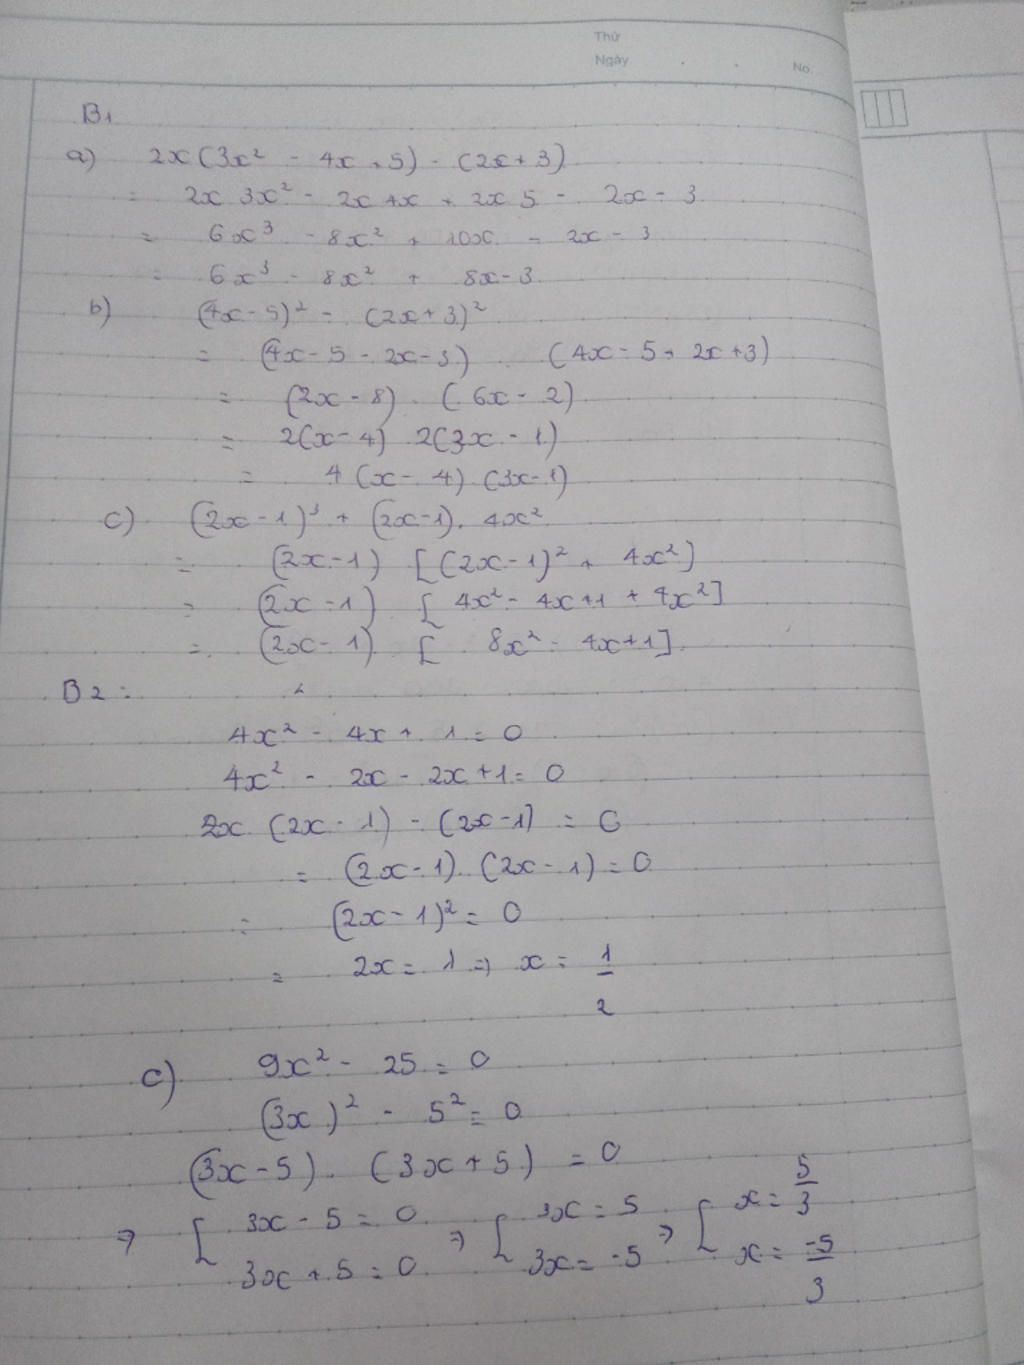 Thứ
Ngày
No.
B1
a) 2x(3x² - 4x + 5) - (2x + 3)
= 2x 3x² - 2x 4x + 2x 5 - 2x - 3
= 6x³ - 8x² + 10x - 2x - 3
= 6x³ - 8x² + 8x - 3
b) (4x - 5)² - (2x + 3)²
= (4x - 5 - 2x - 3) . (4x - 5 + 2x + 3)
= (2x - 8) . (6x - 2)
= 2(x - 4) 2(3x - 1)
= 4 (x - 4) . (3x - 1)
c) (2x - 1)³ + (2x - 1) . 4x²
= (2x - 1) [(2x - 1)² + 4x²]
= (2x - 1) [4x² - 4x + 1 + 4x²]
= (2x - 1) [8x² - 4x + 1]
B2 :
4x² - 4x + 1 = 0
4x² - 2x - 2x + 1 = 0
2x (2x - 1) - (2x - 1) = 0
= (2x - 1) . (2x - 1) = 0
= (2x - 1)² = 0
= 2x = 1 => x = 1/2
c) 9x² - 25 = 0
(3x)² - 5² = 0
(3x - 5) . (3x + 5) = 0
=> [ 3x - 5 = 0 => [ 3x = 5 => [ x = 5/3
3x + 5 = 0 3x = -5 x = -5/3